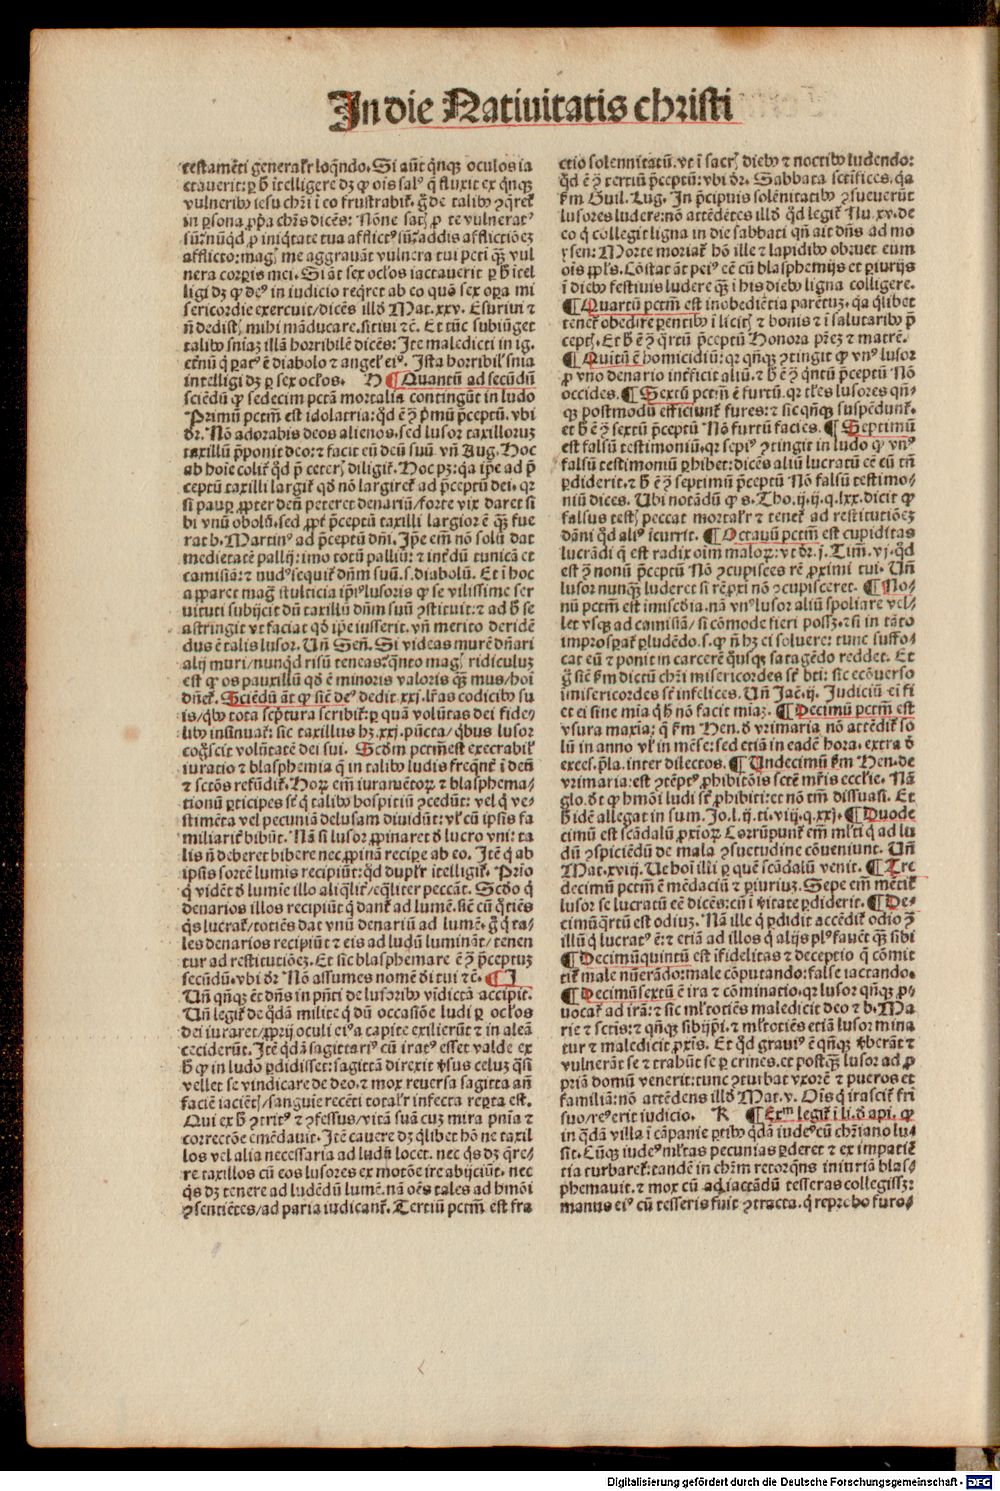 In die Natiuitatis christi
testamēti generalr̄ loq̄ndo. Si aūt q̄nqꝫ oculos ia
ctauerit: ꝑ h̄ ītelligere dꝫ ꝙ oīs salꝰ q̄ fluxit ex q̄nqꝫ
vulneribꝰ iesu chr̄i ī eo frustrabit̄. de talibꝰ ꝯq̄ret̄
in ꝑsona ꝓpa chr̄s dicēs: Nōne ꝓ te vulneratꝰ
sū: nūq̄d ꝓ iniq̄tate tua afflictꝰ sū: addis afflictiōeꝫ
afflicto: magꝭ me aggrauāt vulnera tui peti qꝫ vul
nera corꝑis mei. Si āt sex oclos iactauerit ꝑ h̄ ītel
ligi dꝫ ꝙ deꝰ in iudicio reqret ab eo quō sex oꝑa mi
sericordie exercuit/ dicēs illd̄ Mat. xxv. Esuriui ⁊
nō dedistꝭ mihi māducare. sitiui ⁊c̄. Et tūc subiūget
talibꝰ sn̄iaꝫ illā horribilē dicēs: Ite maledicti in ig.
et̄nū q̄ ꝑatꝰ ē diabolo ⁊ angel̄ eiꝰ. Ista horribil̄ sn̄ia
intelligi dꝫ ꝑ sex oclos. H ¶ Quantū ad secūdū
sciēdū ꝙ sedecim pctā mortalia contingūt in ludo
Primū pctm̄ est idolatria: qd̄ ē ꝯ p̄mū p̄ceptū. vbi
dr̄. Nō adorabis deos alienos. sed lusor taxilloruꝫ
taxillū p̄ponit deo: ⁊ facit eū deū suū. vn̄ Aug. Hoc
ab hoīe colit̄ qd̄ p̄ ceterꝭ diligit̄. Hoc pꝫ: qa ip̄e ad p̄
ceptū taxilli largit̄ qd̄ nō largiret̄ ad p̄ceptū dei. qr
si pauꝑ ꝓpter deū peteret denariū/ forte vix daret si
bi vnū obolū. sed ꝓpt̄ p̄ceptū taxilli largior ē qꝫ fue
rat b. Martinꝰ ad p̄ceptū dn̄i. Ip̄e em̄ nō solū dat
medietatē pallij: imo totū palliū: ⁊ int̄dū tunicā et
camisiā: ⁊ nudꝰ sequit̄ dn̄m suū. s. diabolū. Et ī hoc
apparet maḡ stulticia ip̄iꝰ lusoris ꝙ se vilissime ser
uituti subijcit dū taxillū dn̄m suū ꝯstituit: ⁊ ad h̄ se
astringit vt faciat qd̄ ip̄e iusserit. vn̄ merito deridē
dus ē talis lusor. Vn̄ Sen̄. Si videas murē dn̄ari
alij muri/ nunq̄d risū teneas: q̄nto magꝭ ridiculuꝫ
est ꝙ os pauxillū qd̄ ē minoris valoris qꝫ mus/ hoī
dn̄et̄. Sciēdū āt ꝙ sic̄ deꝰ dedit. xxj. lr̄as codicibꝰ su
is/ q̄bꝰ tota scp̄tura scribit̄: ꝑ quā volūtas dei fide/
libꝰ insinuat̄: sic taxillus hꝫ. xxj. pūcta/ q̄bus lusor
coḡscit volūtatē dei sui. Scd̄m pctm̄ est execrabil̄
iuratio ⁊ blasphemia q̄ in talibꝰ ludis freq̄nt̄ ī deū
⁊ sctōs refūdit̄. Hoꝝ em̄ iuramētoꝝ ⁊ blasphema/
tionū ꝑticipes st̄ q̄ talibꝰ hospitiū ꝯcedūt: vel q̄ ve/
stimēta vel pecuniā delusam diuidūt: vl̄ cū ipsis fa
miliarit̄ bibūt. Nā si lusor ꝓpinaret d̄ lucro vni: ta
lis nō deberet bibere nec ꝓpinā recipe ab eo. Itē q̄ ab
ipsis sortē lumis recipiūt: qd̄ duplr̄ itelligit̄. Prīo
q̄ vidēt d̄ lumīe illo aliq̄lit̄/ eq̄liter peccāt. Scd̄o q̄
denarios illos recipiūt q̄ dant̄ ad lumē. sic̄ cū q̄tiēs
q̄s lucrat̄/ totiēs dat vnū denariū ad lumē. g̊ q̄ ta/
les denarios recipiūt ⁊ eis ad ludū lumināt/ tenen
tur ad restitutiōeꝫ. Et sic blasphemare ē ꝯ p̄ceptuꝫ
secūdū. vbi dr̄ Nō assumes nomē dei tui ⁊c̄. ¶ I
Vn̄ q̄nqꝫ ēt dn̄s in p̄nti de lusoribꝰ vīdictā accipit.
Vn̄ legit̄ de q̄dā milite q̄ dū occasiōe ludi ꝑ oclos
dei iuraret/ ꝓprij oculi eiꝰ a capite exilierūt ⁊ in aleā
ceciderūt. Itē q̄dā sagittariꝰ cū iratꝰ esset valde ex
h̄ ꝙ in ludo ꝑdidisset: sagittā direxit v̄sus celuꝫ q̄si
vellet se vindicare de deo. ⁊ mox reuersa sagitta an̄
faciē iaciētꝭ/ sanguīe recēti totalr̄ infecta reperta est.
Qui ex h̄ ꝯtritꝰ ⁊ ꝯfessus/ vitā suā cuꝫ mira pn̄ia ⁊
correctōe emēdauit. Itē cauere dꝫ q̄libet hō ne taxil
los vel alia necessaria ad ludū locet. nec q̄s dꝫ q̄re/
re taxillos cū eos lusores ex motōe ire abijciūt. nec
q̄s dꝫ tenere ad ludēdū lumē. nā oēs tales ad hm̄oi
ꝯsentiētes/ ad paria iudicant̄. Tertiū pctm̄ est fra
ctio solennitatū. vt ī sacrꝭ diebꝰ ⁊ noctibꝰ ludendo:
qd̄ ē ꝯ tertiū p̄ceptū: vbi dr̄. Sabbata sctīfices. qa
km̄ Guil. Lug. In p̄cipuis solēnitatibꝰ ꝯsueuerūt
lusores ludere: nō attēdētes illd̄ qd̄ legit̄ Nu. xv. de
eo q̄ collegit ligna in die sabbati qn̄ ait dn̄s ad mo
ysen: Morte moriat̄ hō ille ⁊ lapidibꝰ obruet eum
oīs ppl̄s. Cōstat āt peiꝰ eē cū blasphemijs et ꝑiurijs
ī diebꝰ festiuis ludere qꝫ ī his diebꝰ ligna colligere.
¶ Quartū pctm̄ est inobediētia parētuꝫ. qa q̄libet
tenet̄ obedire ꝑentibꝰ ī licitꝭ ⁊ bonis ⁊ ī salutaribꝰ p̄
ceptꝭ. Et h̄ ē ꝯ q̄rtū p̄ceptū Honora pr̄eꝫ ⁊ matrē.
¶ Quītū ē homicidiū: qr q̄nqꝫ ꝯtingit ꝙ vnꝰ lusor
ꝓ vno denario interficit aliū. ⁊ h̄ ē ꝯ q̄ntū p̄ceptū Nō
occides. ¶ Sextū pctm̄ ē furtū. qr tl̄es lusores qn̄/
qꝫ postmodū efficiunt̄ fures: ⁊ sic qn̄qꝫ suspēdunt̄.
et h̄ ē ꝯ sextū p̄ceptū Nō furtū facies. ¶ Septimū
est falsū testimoniū. qr sepiꝰ ꝯtingit in ludo ꝙ vnꝰ
falsū testimoniū ꝑhibet: dicēs aliū lucratū eē cū tn̄
ꝑdiderit. ⁊ h̄ ē ꝯ septimū p̄ceptū Nō falsū testimo/
niū dices. Ubi notādū ꝙ s. Tho. ij. ij. q. lxx. dicit ꝙ
falsus testꝭ peccat mortalr̄ ⁊ tenet̄ ad restitutiōeꝫ
dāni qd̄ aliꝰ īcurrit. ¶ Octauū pctm̄ est cupiditas
lucrādi q̄ est radix oīm maloꝝ: vt dr̄. j. Tim̄. vj. qd̄
est ꝯ nonū p̄ceptū Nō ꝯcupisces rē ꝓximi tui. Vn̄
lusor nunqꝫ luderet si rē ꝓxi nō ꝯcupisceret. ¶ No/
nū pctm̄ est imīscd̄ia. nā vnꝰ lusor aliū spoliare vel/
let vsqꝫ ad camisiā/ si cōmode fieri possꝫ. ⁊ si in tāto
improsꝑat̄ ꝑludēdo. s. ꝙ nō hꝫ ei soluere: tunc suffo/
cat eū ⁊ ponit in carcerē q̄usqꝫ satagēdo reddet. Et
g̊ sic̄ km̄ dictū chr̄i misericordes st̄ bti: sic ecōuerso
īmisericordes st̄ infelices. Vn̄ Jac̄. ij. Judiciū ei fi
et ei sine mīa q̄ h̄ nō facit mīaꝫ. ¶ Decimū pctm̄ est
vsura maxīa: q̄ km̄ Hen. d̄ vrimaria nō attēdit̄ so
lū in anno vl̄ in mēse: sed etiā in eadē hora. extra d̄
exces. p̄la. inter dilectos. ¶ Undecimū km̄ Hen. de
vrimaria: est ꝯtēptꝰ ꝓhibitōis sctē mr̄is ecclie. Nā
glo. d̄t ꝙ hm̄oi ludi st̄ ꝓhibiti: et nō tm̄ dissuasi. Et
h̄ idē allegat in sum. Jo. l. ij. ti. viij. q. xxj. ¶ Duode
cimū est scādalū ꝓxioꝝ Corrūpunt̄ em̄ ml̄ti q̄ ad lu
dū ꝯspiciēdū de mala ꝯsuetudine cōueniunt. Vn̄
Mat. xviij. Ue hoī illi ꝑ quē scādalū venit. ¶ Tre
decimū pctm̄ ē mēdaciū ⁊ ꝑiuriuꝫ. Sepe em̄ mētit̄
lusor se lucratū eē dicēs: cū ī v̄itate ꝑdiderit. ¶ De/
cimūq̄rtū est odiuꝫ. Nā ille q̄ ꝑdidit accēdit̄ odio ꝯ
illū q̄ lucratꝰ ē: ⁊ etiā ad illos q̄ alijs plꝰ fauēt qꝫ sibi
¶ Decimūquintū est īfidelitas ⁊ deceptio q̄ cōmit
tit̄ male nūerādo: male cōputando: false iactando.
¶ Decimūsextū ē ira ⁊ cōminatio. qr lusor qn̄qꝫ ꝓ/
uocat̄ ad irā: ⁊ sic ml̄totiēs maledicit deo ⁊ b. Ma
rie ⁊ sctīs: ⁊ qn̄qꝫ sibijp̄i. ⁊ ml̄totiēs etiā lusor mina
tur ⁊ maledicit ꝓxīs. Et qd̄ grauiꝰ ē qn̄qꝫ v̄berāt ⁊
vulnerāt se ⁊ trahūt se ꝑ crines. et postqꝫ lusor ad ꝓ
priā domū venerit: tunc ꝯturbat vxorē ⁊ pueros et
familiā: nō attēdens illd̄ Mat. v. Oīs q̄ irascit̄ fr̄i
suo/ reꝰ erit iudicio. K ¶ Exᵐ legit̄ ī li. d̄ api. ꝙ
in q̄dā villa ī cāpanie ꝑtibꝰ q̄dā iudeꝰ cū chr̄iano lu/
sit. Cūqꝫ iudeꝰ ml̄tas pecunias ꝑderet ⁊ ex impatiē
tia turbaret̄: tandē in chr̄m retorq̄ns iniuriā blas/
phemauit. ⁊ mox cū ad iactādū tesseras collegissꝫ:
manus eiꝰ cū tesseris fuit ꝯtracta. q̄ reprebo furo/
Digitalisierung gefördert durch die Deutsche Forschungsgemeinschaft - DFG